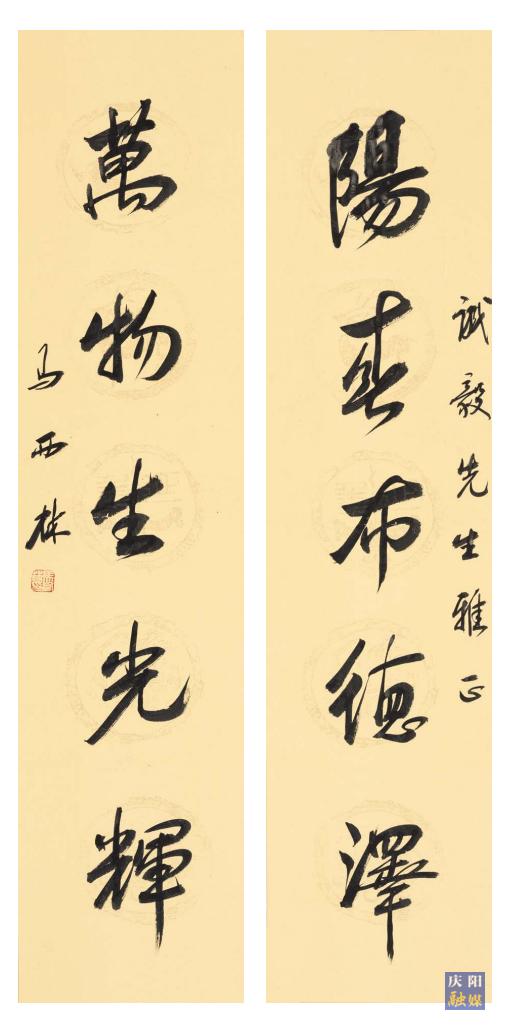 诚毅先生雅正
陽春布德澤
萬物生光輝
马西林
庆阳
融媒